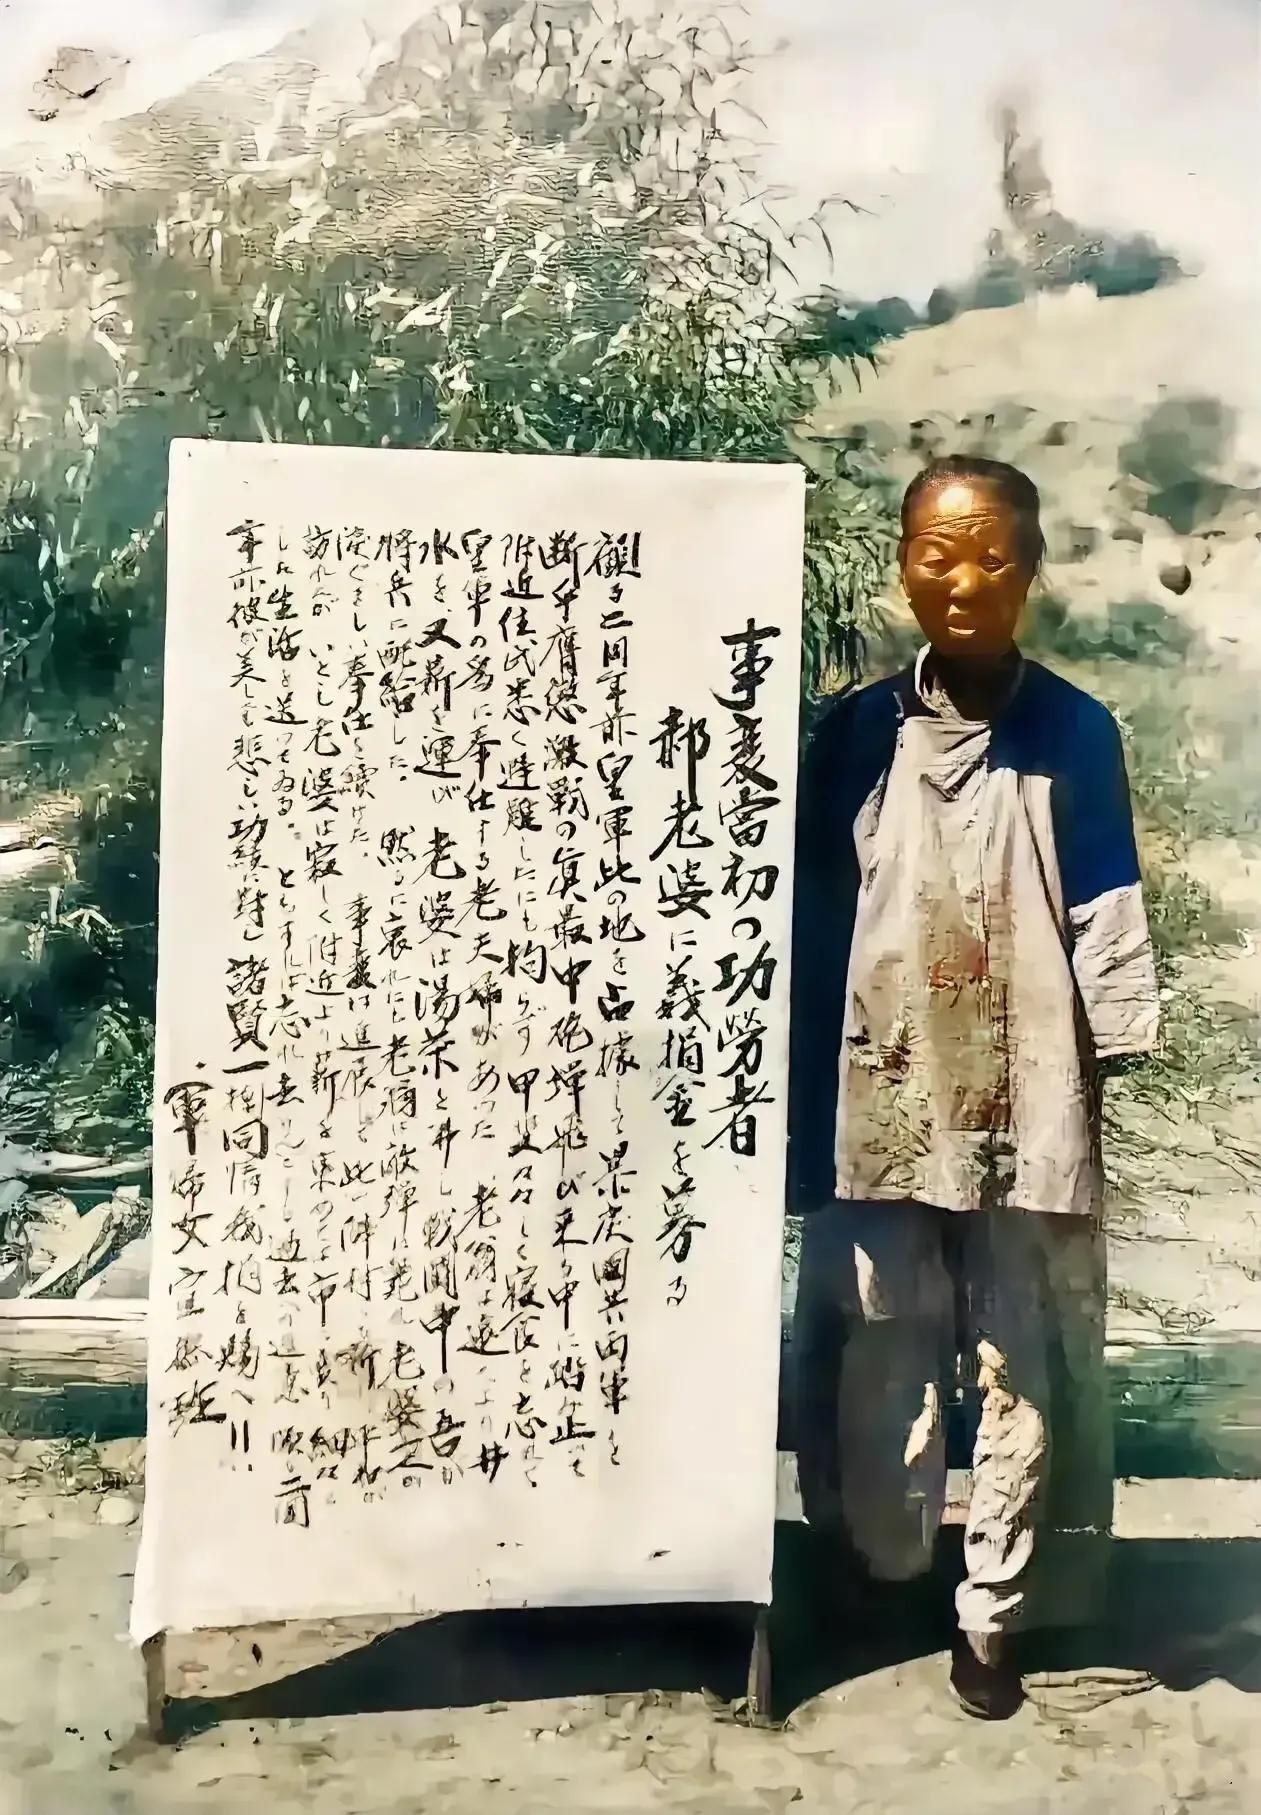 事変當初の功勞者
郝老婆に義捐金を募る
顧る二周年前皇軍此の地を占據して暴戻國共両軍を
断乎膺懲激戰の眞最中砲弾飛び来る中に踏み止って
附近住民悉く避難したにも拘らず甲斐々々しく寝食を忘れて
皇軍の為に奉仕する老夫婦があった 老翁は遠くより井
水を、又薪を運び 老婆は湯茶を沸し戦闘中の吾が
將兵に配給した。 然るに哀れにも老翁は敵弾に斃れ老婆
涙ぐましい奉仕を續けた。 事変は進展して此の
訪れたが いとし老婆は寂しく附近より薪を集めては市に賣り細々と
した生活を送ってゐる。 ともすれば忘れ去られんとする過去の追憶
年前彼が美しくも悲しい功績に對し 諸賢一掬同情義捐を賜へ!!
軍婦女宣撫班